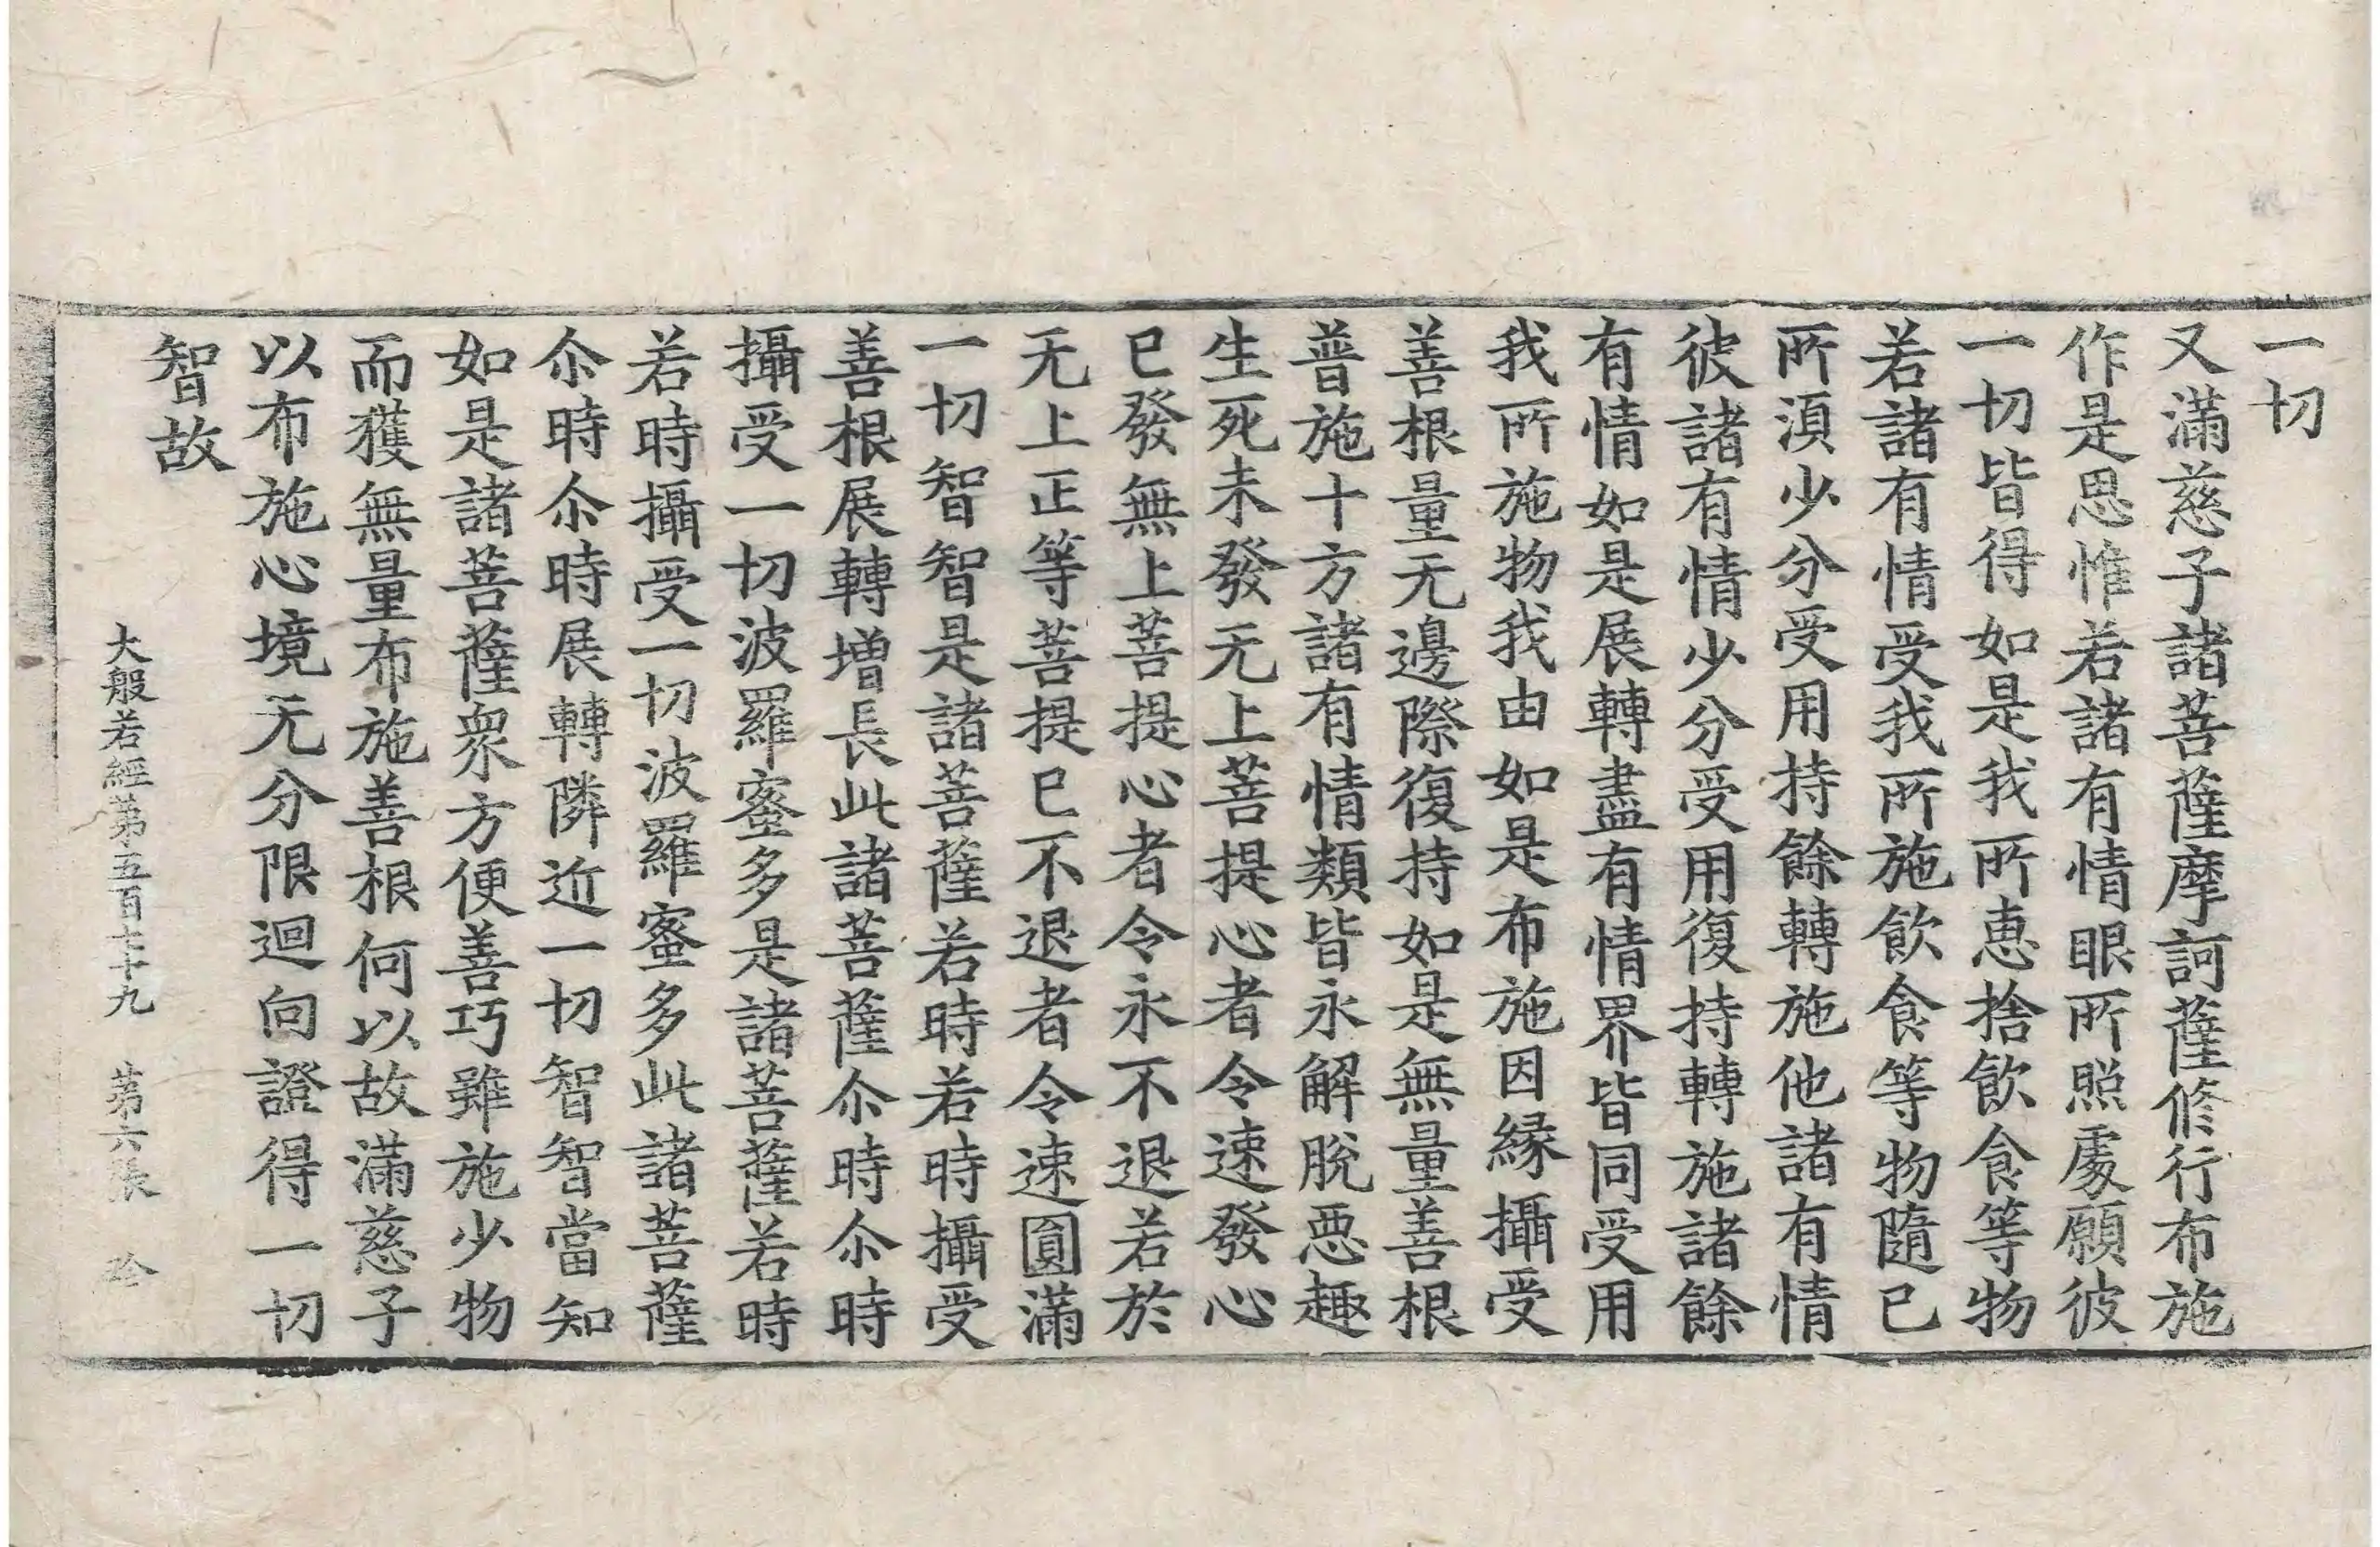 一切
又滿慈子諸菩薩摩訶薩修行布施
作是思惟若諸有情眼所照處願彼
一切皆得如是我所恵捨飲食等物
若諸有情受我所施飲食等物隨已
所湏少分受用持餘轉施他諸有情
彼諸有情少分受用復持轉施諸餘
有情如是展轉盡有情界皆同受用
我所施物我由如是布施因緣攝受
善根量无邊際復持如是無量善根
普施十方諸有情類皆永解脫惡趣
生死未發无上菩提心者令速發心
已發無上菩提心者令永不退若於
无上正等菩提已不退者令速圓滿
一切智智是諸菩薩若時若時攝受
善根展轉增長此諸菩薩尒時尒時
攝受一切波羅蜜多是諸菩薩若時
若時攝受一切波羅蜜多此諸菩薩
尒時尒時展轉隣近一切智智當知
如是諸菩薩衆方便善巧雖施少物
而獲無量布施善根何以故滿慈子
以布施心境无分限迴向證得一切
智故
大般若經第五百七十九 第六張 珍